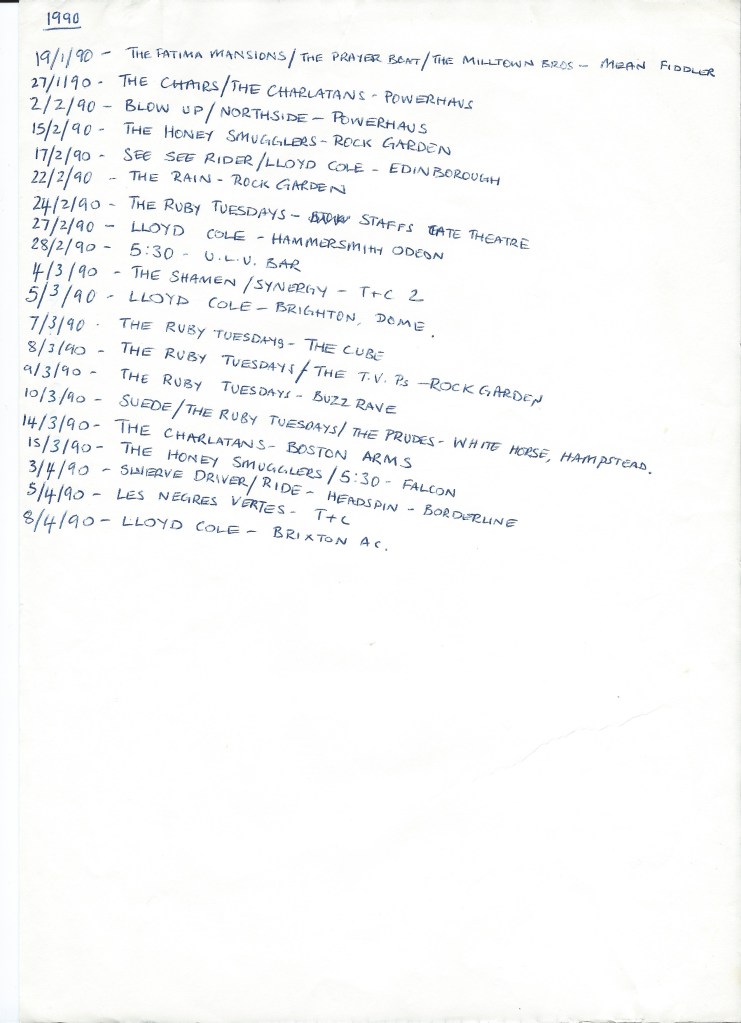 1990
19/1/90 - THE FATIMA MANSIONS/THE PRAYER BOAT/THE MILLTOWN BROS - MEAN FIDDLER
27/1/90 - THE CHAIRS/THE CHARLATANS - POWERHAUS
2/2/90 - BLOW UP/NORTHSIDE - POWERHAUS
15/2/90 - THE HONEY SMUGGLERS - ROCK GARDEN
17/2/90 - SEE SEE RIDER/LLOYD COLE - EDINBOROUGH
22/2/90 - THE RAIN - ROCK GARDEN
24/2/90 - THE RUBY TUESDAYS - STAFFS GATE THEATRE
27/2/90 - LLOYD COLE - HAMMERSMITH ODEON
28/2/90 - 5:30 - U.L.U. BAR
4/3/90 - THE SHAMEN/SYNERGY - T+C 2
5/3/90 - LLOYD COLE - BRIGHTON, DOME.
7/3/90 - THE RUBY TUESDAYS - THE CUBE
8/3/90 - THE RUBY TUESDAYS/THE T.V. Ps - ROCK GARDEN
9/3/90 - THE RUBY TUESDAYS - BUZZ RAVE
10/3/90 - SUEDE/THE RUBY TUESDAYS/THE PRUDES - WHITE HORSE, HAMPSTEAD.
14/3/90 - THE CHARLATANS - BOSTON ARMS
15/3/90 - THE HONEY SMUGGLERS/5:30 - FALCON
3/4/90 - SWERVE DRIVER/RIDE - HEADSPIN - BORDERLINE
5/4/90 - LES NEGRES VERTES - T+C
8/4/90 - LLOYD COLE - BRIXTON AC.